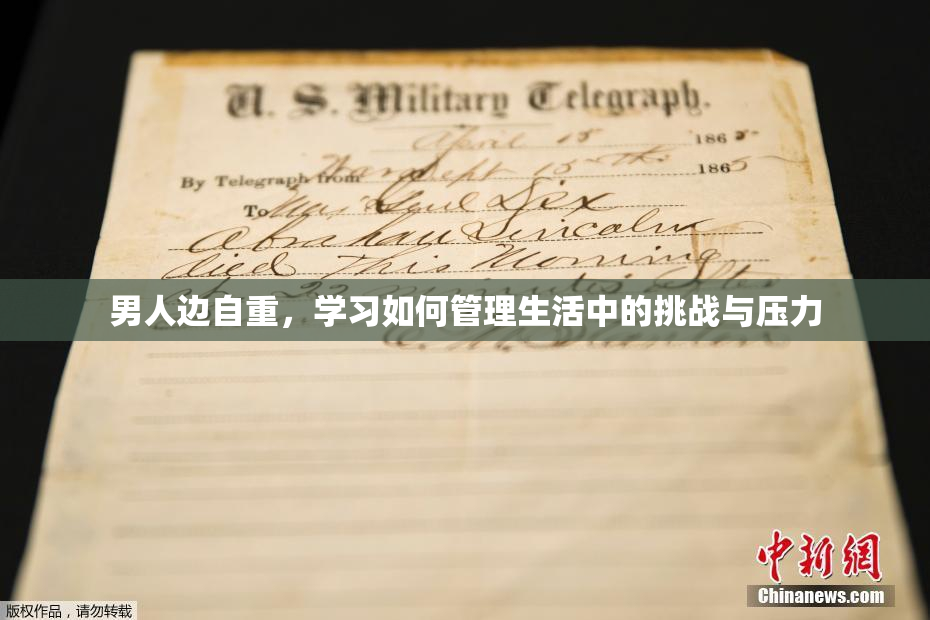 U. S. Military Telegraph.
April 15 1865
By Telegraph from War Dept 15th 1865
To Maj Genl Dix
Abraham Lincoln
died This Morning
at 22 minutes after
男人边自重，学习如何管理生活中的挑战与压力
E. M. Stanton
中新網
Chinanews.com
版权作品，请勿转载